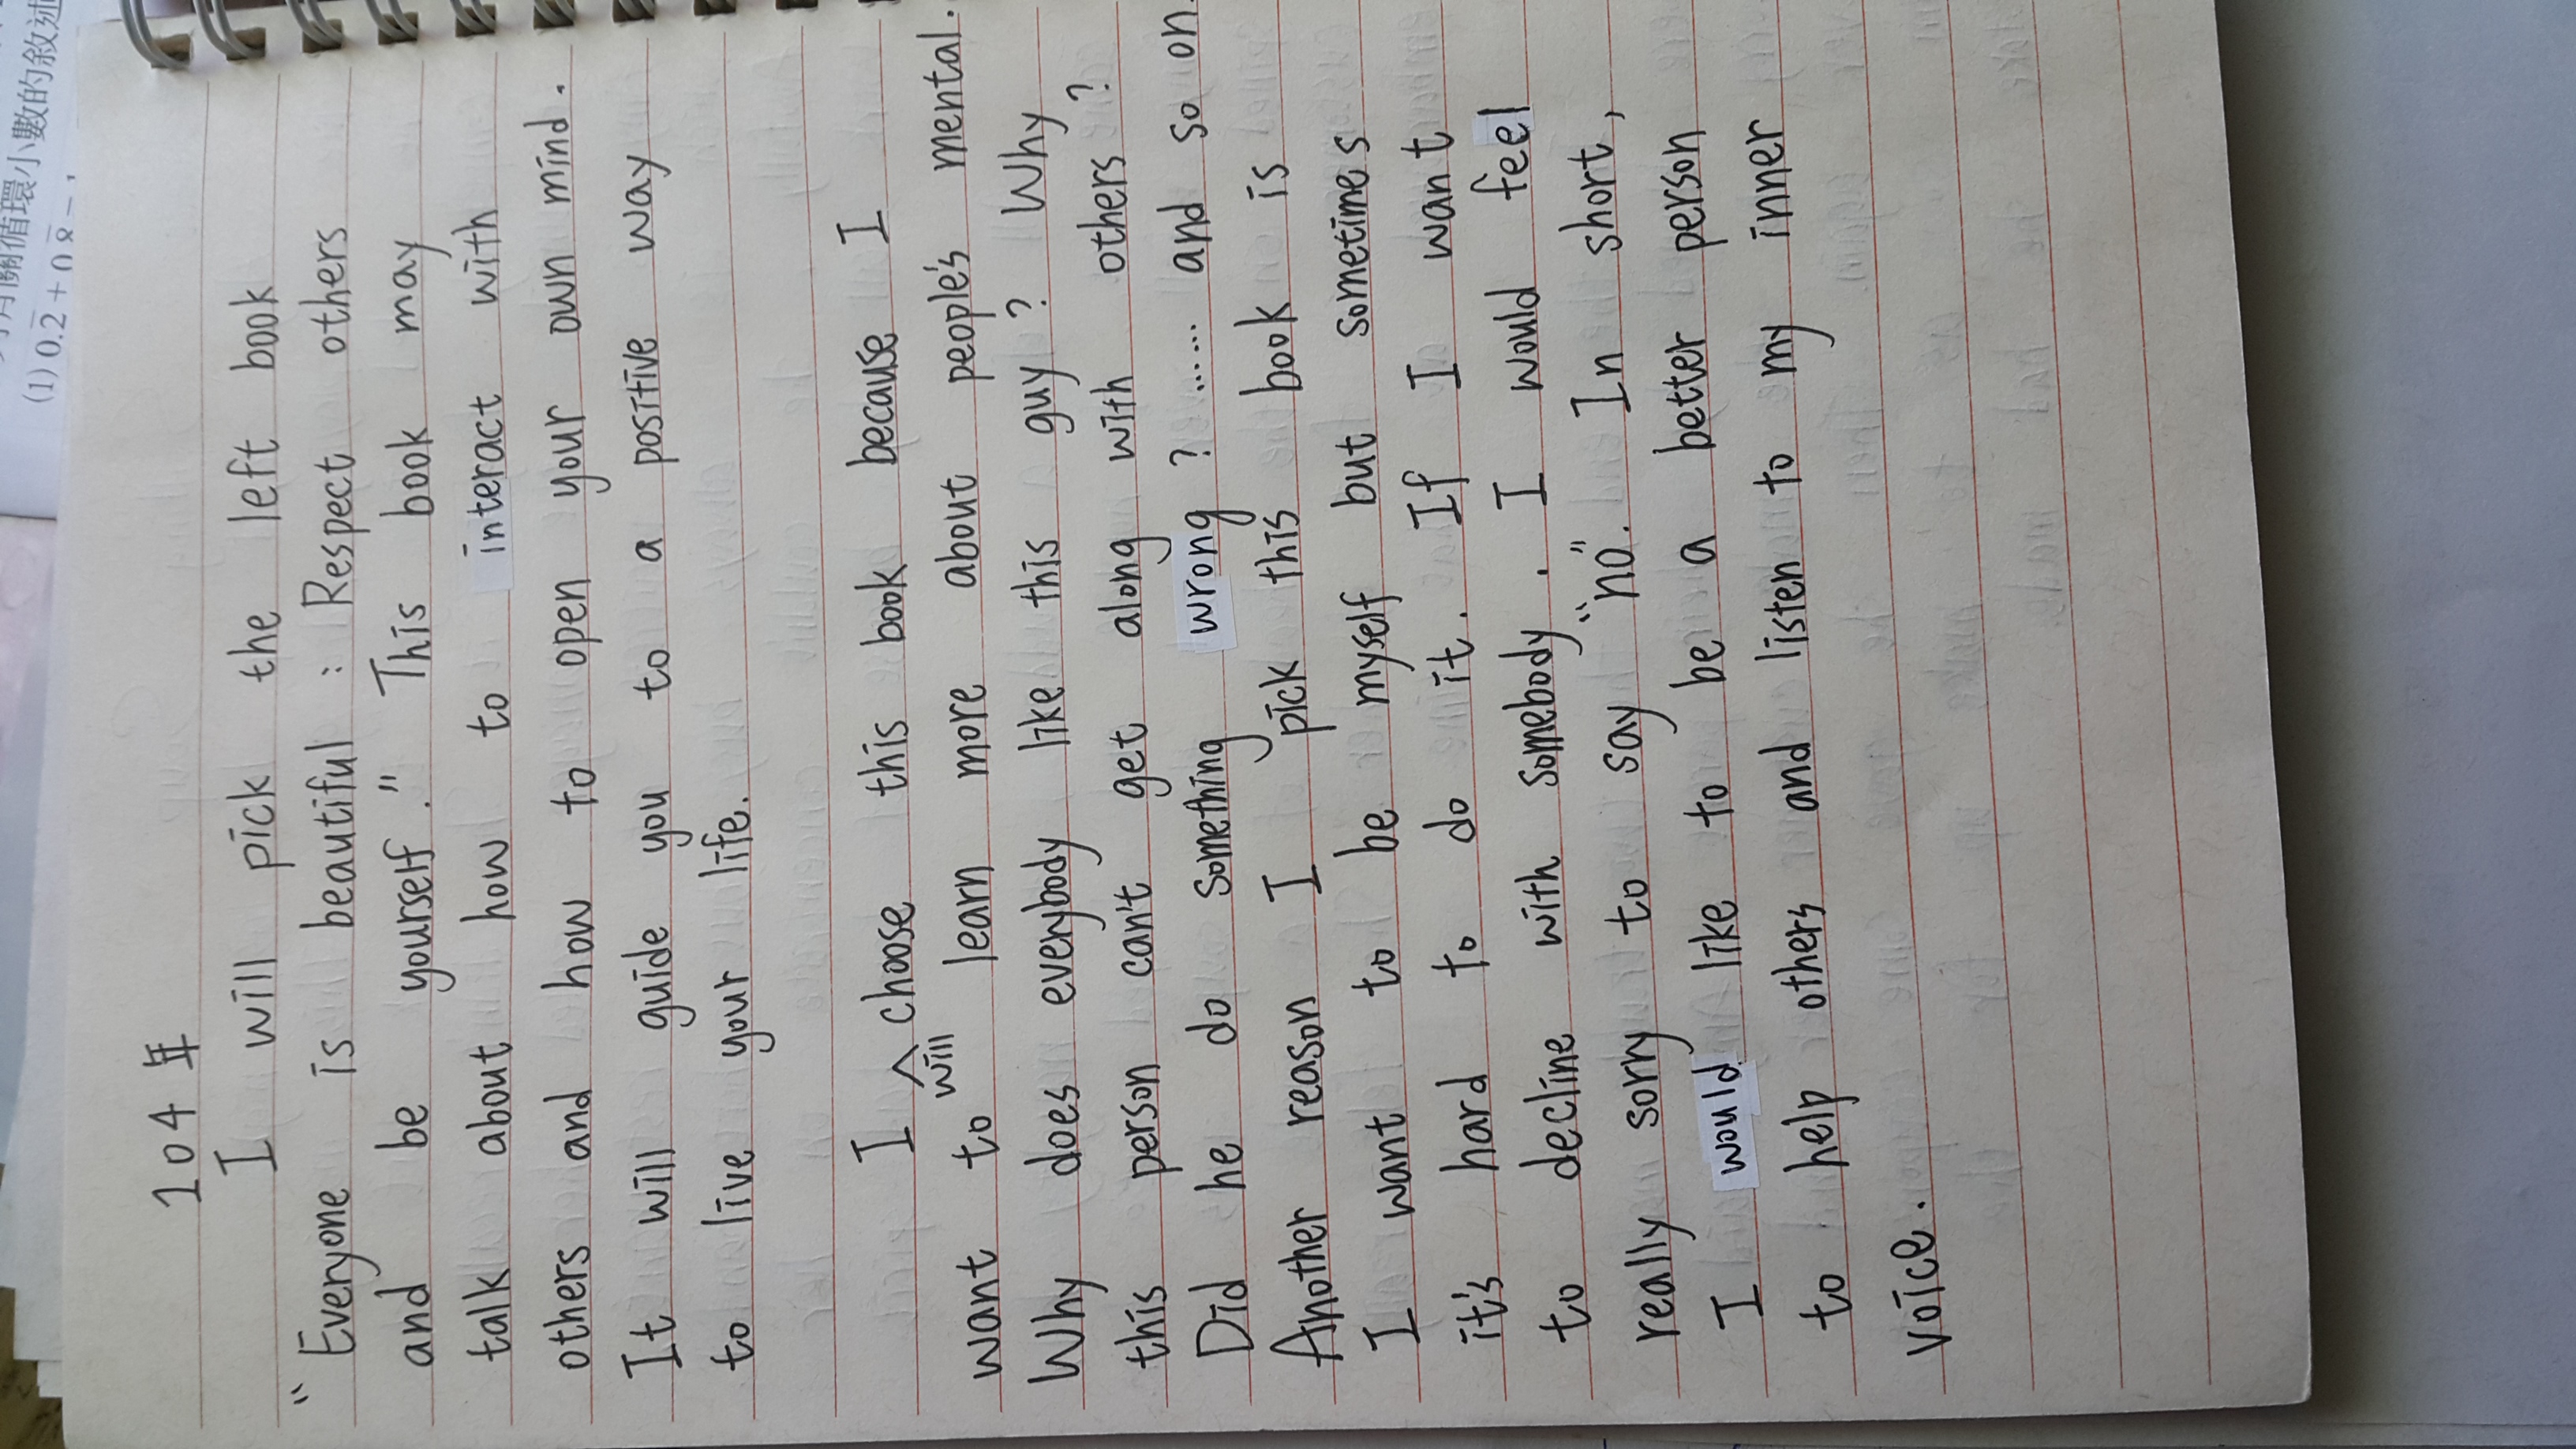 關循環小數的敘述
(1) 0.2 + 0.8 = 1
104年
I will pick the left book
"Everyone is beautiful : Respect others
and be yourself." This book may
talk about how to interact with
others and how to open your own mind.
It will guide you to a positive way
to live your life.
I will choose this book because I
want to learn more about people's mental.
Why does everybody like this guy? Why
this person can't get along with others?
Did he do something wrong? ...... and so on.
Another reason I pick this book is
I want to be myself but sometimes
it's hard to do it. If I want
to decline with somebody. I would feel
really sorry to say "no". In short,
I would like to be a better person
to help others and listen to my inner
voice.